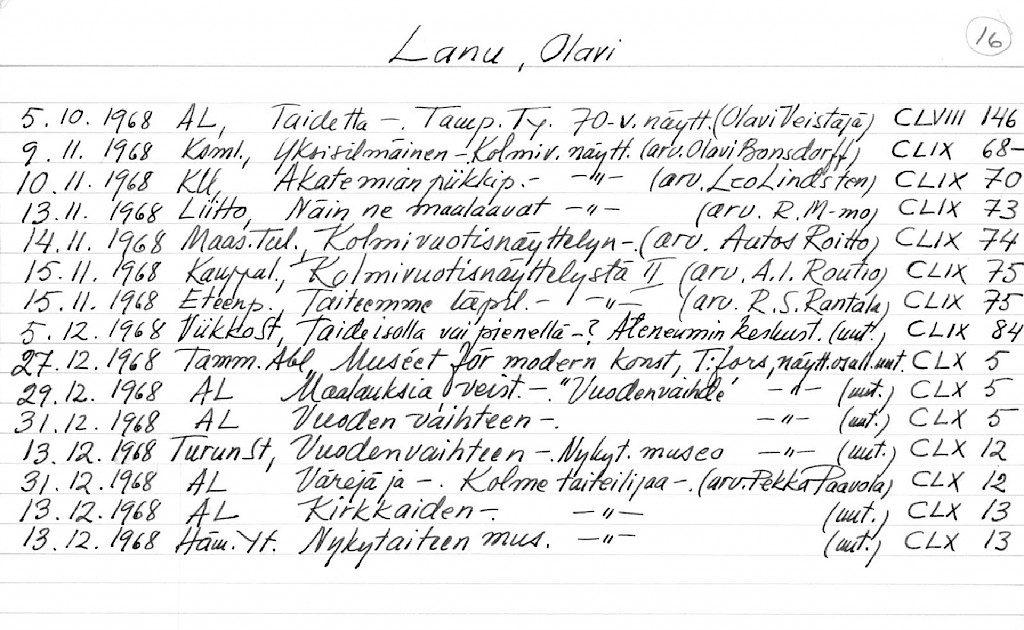 16
Lanu, Olavi
5.10.1968 AL, Taidetta -. Tamp. Ty. 70-v. näytt. (Olavi Veistäjä) CLVIII 146
9.11.1968 Ksml., Yksisilmäinen - Kolmiv. näytt. (arv. Olavi Bonsdorff) CLIX 68-
10.11.1968 KU, Akatemian piikkip. - -"- (arv. Leo Lindsten) CLIX 70
13.11.1968 Liitto, Näin ne maalaavat -"- (arv. R. M-mo) CLIX 73
14.11.1968 Maas. Tul., Kolmivuotisnäyttelyn -. (arv. Autos Roitto) CLIX 74
15.11.1968 Kauppal., Kolmivuotisnäyttelystä II (arv. A.I. Routio) CLIX 75
15.11.1968 Eteenp. Taiteemme läpil. - -"- (arv. R.S. Rantala) CLIX 75
5.12.1968 ViikkoSt, Taide isolla vai pienellä -? Ateneumin keskust. (uut.) CLIX 84
27.12.1968 Tamm. Abl, Muséet för modern konst, T:fors, näytt. osall. uut. CLX 5
29.12.1968 AL Maalauksia veist. -. "Vuodenvaihde" -"- (uut.) CLX 5
31.12.1968 AL Vuoden vaihteen -. -"- (uut.) CLX 5
13.12.1968 TurunSt, Vuodenvaihteen -. Nykyt. museo -"- (uut.) CLX 12
31.12.1968 AL Värejä ja -. Kolme taiteilijaa -. (arv. Pekka Paavola) CLX 12
13.12.1968 AL Kirkkaiden -. -"- (uut.) CLX 13
13.12.1968 Häm. Yt. Nykytaiteen mus. -"- (uut.) CLX 13